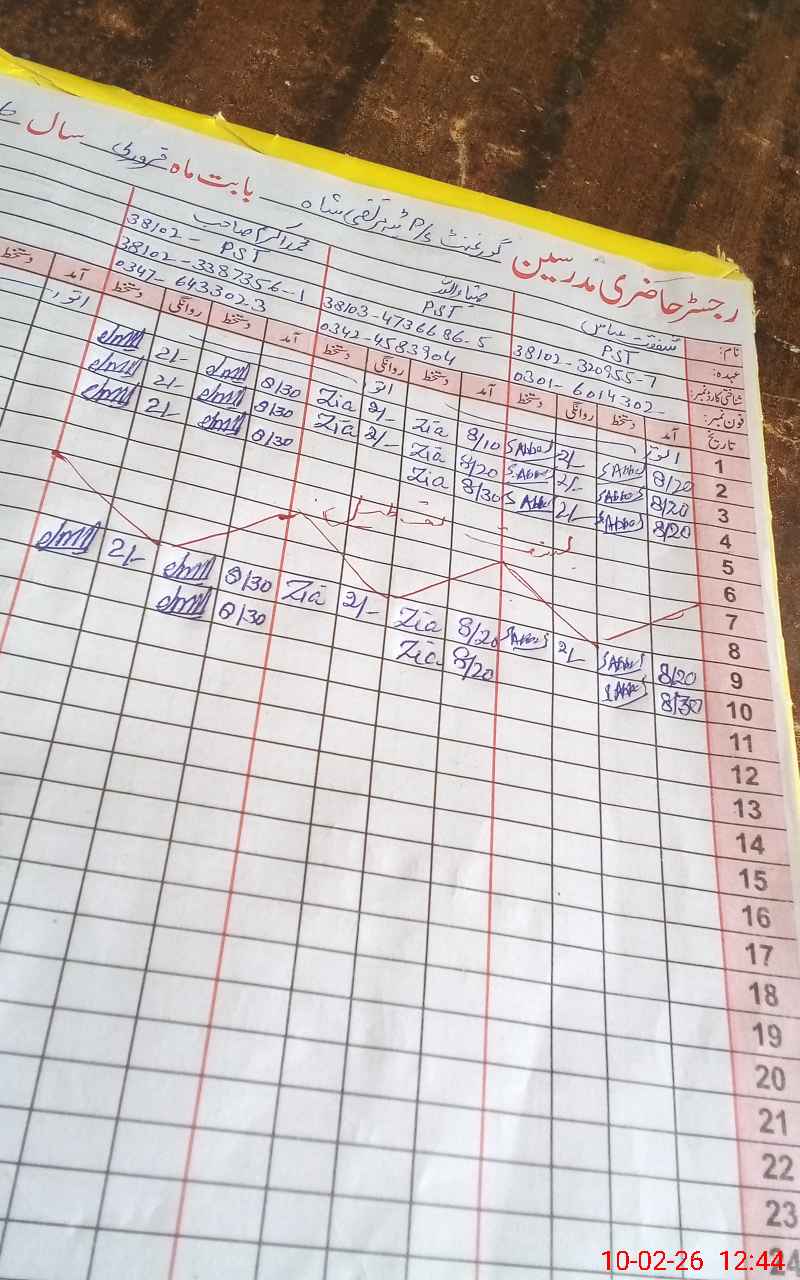 رجسٹر حاضری مدرسین گورنمنٹ P/S مرتضی شاہ بابت ماہ فروری سال
نام: شفقت عباس ضیاءاللہ محمد اکرم صاحب
عہدہ: PST PST PST
شناختی کارڈ نمبر: 38102-320955-7 38103-4736686-5 38102-3387356-1
فون نمبر: 0301-6014302- 0342-4583904 0347-6433023
تاریخ آمد دستخط روانگی دستخط آمد دستخط روانگی دستخط آمد دستخط روانگی دستخط آمد دستخط
1 اتوار
2 8/20 SAbbas 2/- SAbbas 8/10 Zia 2/- Zia 8/30 2/-
3 8/20 SAbbas 2/- SAbbas 8/20 Zia 2/- Zia 8/30 2/-
4 8/20 SAbbas 2/- SAbbas 8/30 Zia 8/30 2/-
5
6
7
8
9 8/20 SAbbas 2/- SAbbas 8/20 Zia 2/- Zia 8/30 2/-
10 8/30 8/20 Zia 8/30
11
12
13
14
15
16
17
18
19
20
21
22
23
24
10-02-26 12:44